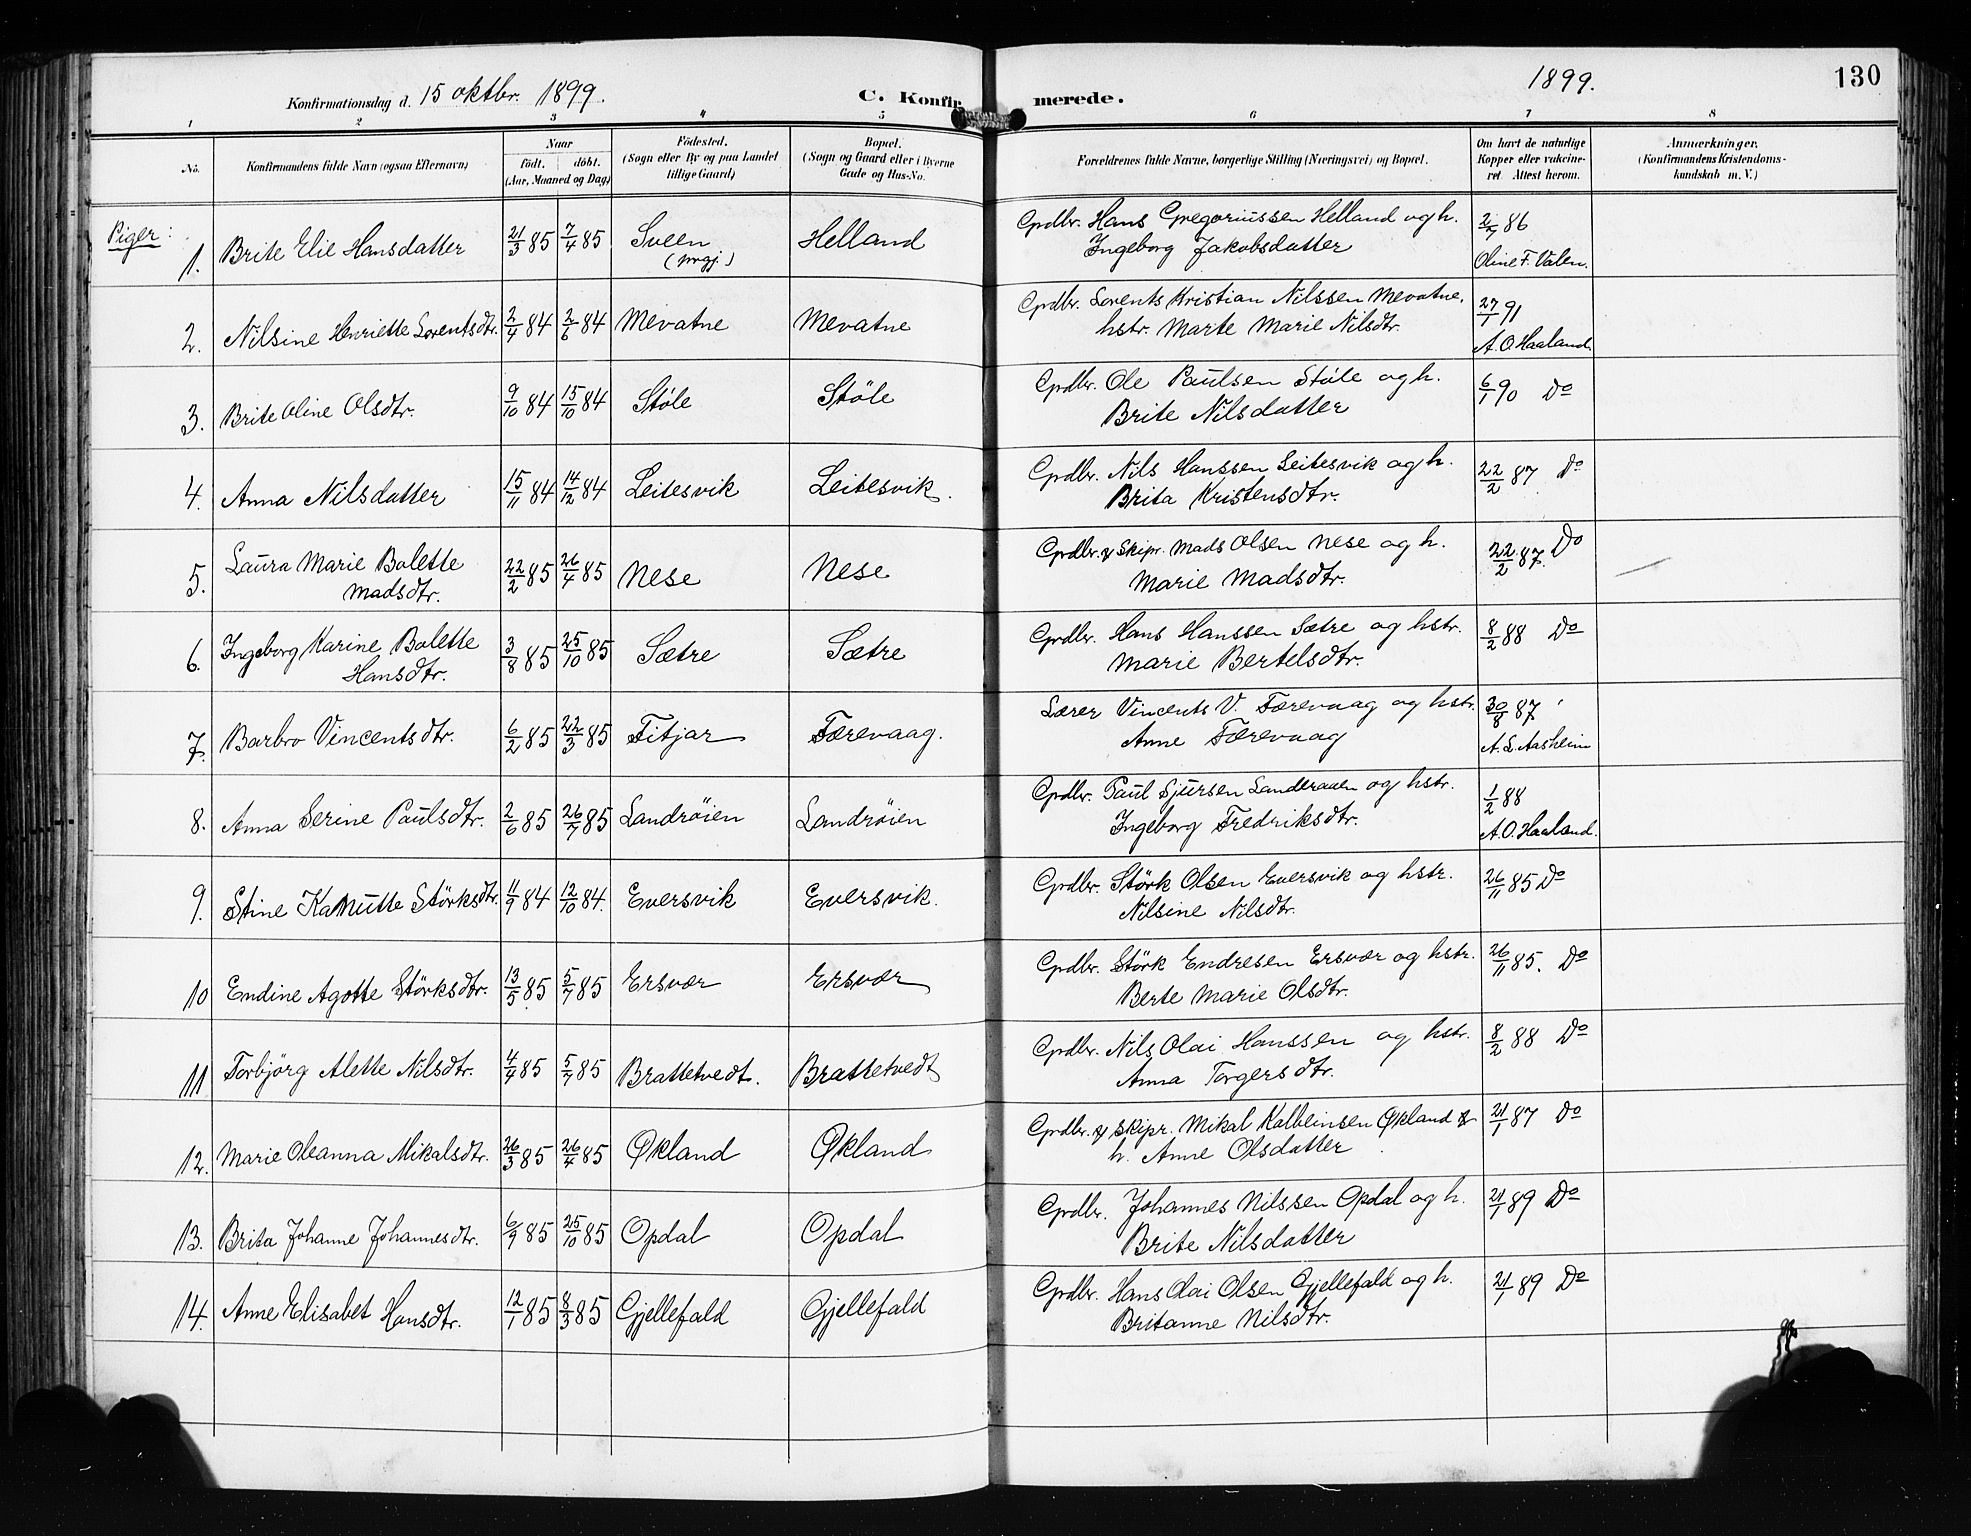 Konfirmationsdag d. 15 oktbr. 1899.
C. Konfir merede.
1899.
130
1 2 3 4 5 6 7 8
No.
Konfirmandens fulde Navn (ogsaa Efternavn)
Naar
født. døbt.
(Aar, Maaned og Dag)
Fødested.
(Sogn eller By og paa Landet
tillige Gaard)
Bopæl.
(Sogn og Gaard eller i Byerne
Gade og Hus-No.
Forældrenes fulde Navne, borgerlige Stilling (Næringsvei) og Bopæl.
Om havt de naturlige
Kopper eller vakcine-
ret Attest herom.
Anmærkninger.
(Konfirmandens Kristendoms-
kundskab m. V.)
Piger:
1. Brite Elie Hansdatter 21/3 85 7/4 85 Sveen Helland Grdbr. Hans Gregoriussen Helland og h. 2/7 86
Ingeborg Jakobsdatter Oline F. Valen.
2. Nilsine Henriette Lorentsdtr. 2/4 84 2/6 84 Mevatne Mevatne Grdbr. Lorents Kristian Nilssen Mevatne. 27/1 91
hstr. Marte Marie Nilsdtr. A. O. Haaland
3. Brite Oline Olsdtr. 9/10 84 15/10 84 Støle Støle Grdbr. Ole Paulsen Støle og h. 6/1 90 Do
Brite Nilsdatter
4. Anna Nilsdatter 15/11 84 14/12 84 Leitesvik Leitesvik. Grdbr. Nils Hanssen Leitesvik og h. 22/2 87 Do
Brita Kristensdtr.
5. Laura Marie Bolette 22/2 85 26/4 85 Nese Nese Grdbr. & Skipr. Mads Olsen Nese og h. 22/2 87. Do
Madsdtr. Marie Madsdtr.
6. Ingeborg Karine Bolette 3/8 85 25/10 85 Sætre Sætre Grdbr. Hans Hanssen Sætre og hstr. 8/2 88 Do
Hansdtr. Marie Bertelsdtr.
7. Barbro Vincentsdtr. 6/2 85 22/3 85 Fitjar Færevaag. Lærer Vincents V. Færevaag og hstr. 30/8 87
Anne Færevaag A. L. Aasheim
8. Anna Serine Paulsdtr. 2/6 85 26/7 85 Landrøien Landrøien Grdbr. Paul Sjursen Landeraaen og hstr. 1/2 88
Ingeborg Fredriksdtr. A. O. Haaland.
9. Stine Kanutte Störksdtr. 11/9 84 12/10 84. Eversvik Eversvik. Grdbr. Störk Olsen Eversvik og hstr. 26/11 85 Do
Nilsine Nilsdtr.
10 Endine Agotte Störksdtr. 13/5 85 5/7 85 Ersvær Ersvær Grdbr. Störk Endresen Ersvær og hstr. 26/11 85. Do
Berte Marie Olsdtr.
11 Torbjörg Alette Nilsdtr. 4/4 85 5/7 85 Brattetvedt. Brattetvedt Grdbr. Nils Olai Hanssen og hstr. 8/2 88 Do
Anna Torgersdtr.
12. Marie Oleanna Mikalsdtr. 26/3 85 26/4 85 Økland Økland Grdbr. & skipr. Mikal Kalbeinsen Økland & 21/1 87 Do
h. Anne Olsdatter
13. Brita Johanne Johannesdtr. 6/9 85 25/10 85 Opdal Opdal Grdbr. Johannes Nilssen Opdal og h. 21/1 89 Do
Brite Nilsdatter
14. Anne Elisabet Hansdtr. 12/1 85 8/3 85 Gjellefald Gjellefald Grdbr. Hans Olai Olsen Gjellefald og h. 21/1 89 Do
Britanne Nilsdtr.